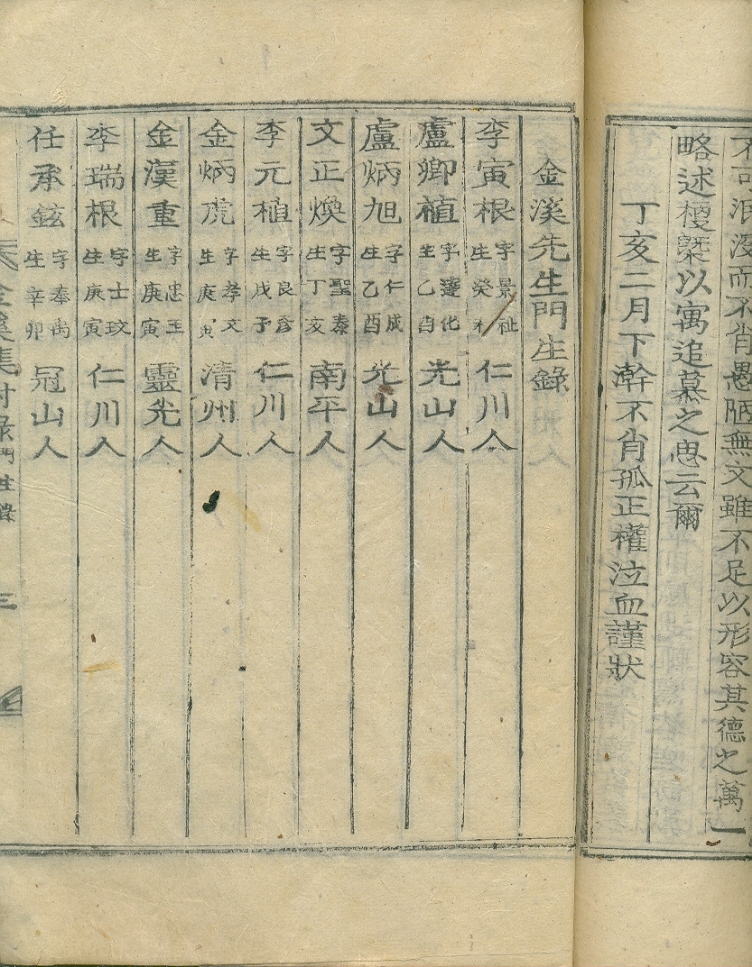 不可泯沒而不肖愚陋無文雖不足以形容其德之萬一
略述梗槩以寓追慕之思云爾
丁亥二月下澣不肖孤正權泣血謹狀
金溪先生門生錄
李寅根 字景祉 生癸 仁川人
盧卿植 字蓮化 生乙酉 光山人
盧炳旭 字仁成 生乙酉 光山人
文正煥 字聖泰 生丁亥 南平人
李元植 字良彦 生戊子 仁川人
金炳虎 字孝文 生庚寅 清州人
金漢重 字忠玉 生庚寅 靈光人
李瑞根 字士玟 生庚寅 仁川人
任承鉉 字奉禹 生辛卯 冠山人
金溪集附錄 門生錄 三